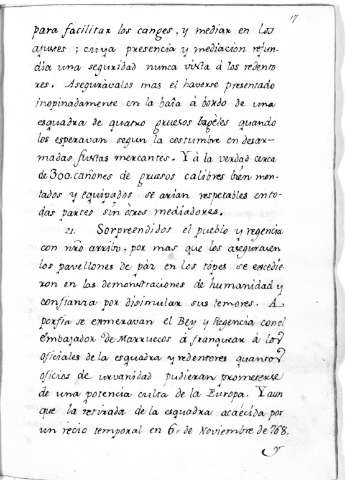 17
para facilitar los canges, y mediar en los
ajustes; cuya presencia y mediacion refun-
dia una seguridad nunca vista à los redento
res. Aseguravalos mas el haverse presentado
inopinadamente en la baîa à bordo de una
esquadra de quatro gruesos bageles quando
los esperavan segun la costumbre en desar-
madas fustas mercantes. Y à la verdad cerca
de 300. cañones de gruesos calibres bien mon-
tados y equipados se arian respetables en to-
das partes sin otros mediadores.
21. Sorprendidos el pueblo y regencia
con nro arrivo, por mas que les asegurasen
los pavellones de paz en los topes se excedie
ron en las demonstraciones de humanidad y
confianza por disimular sus temores. A
porfia se esmeravan el Bey y Regencia con el
embajador de Marruecos à franquear à los
oficiales de la esquadra y redentores quantos
oficios de urvanidad pudieran prometerse
de una potencia culta de la Europa. Y aun
que la retirada de la esquadra acaècida por
un recio temporal en 6. de Noviembre de 768.